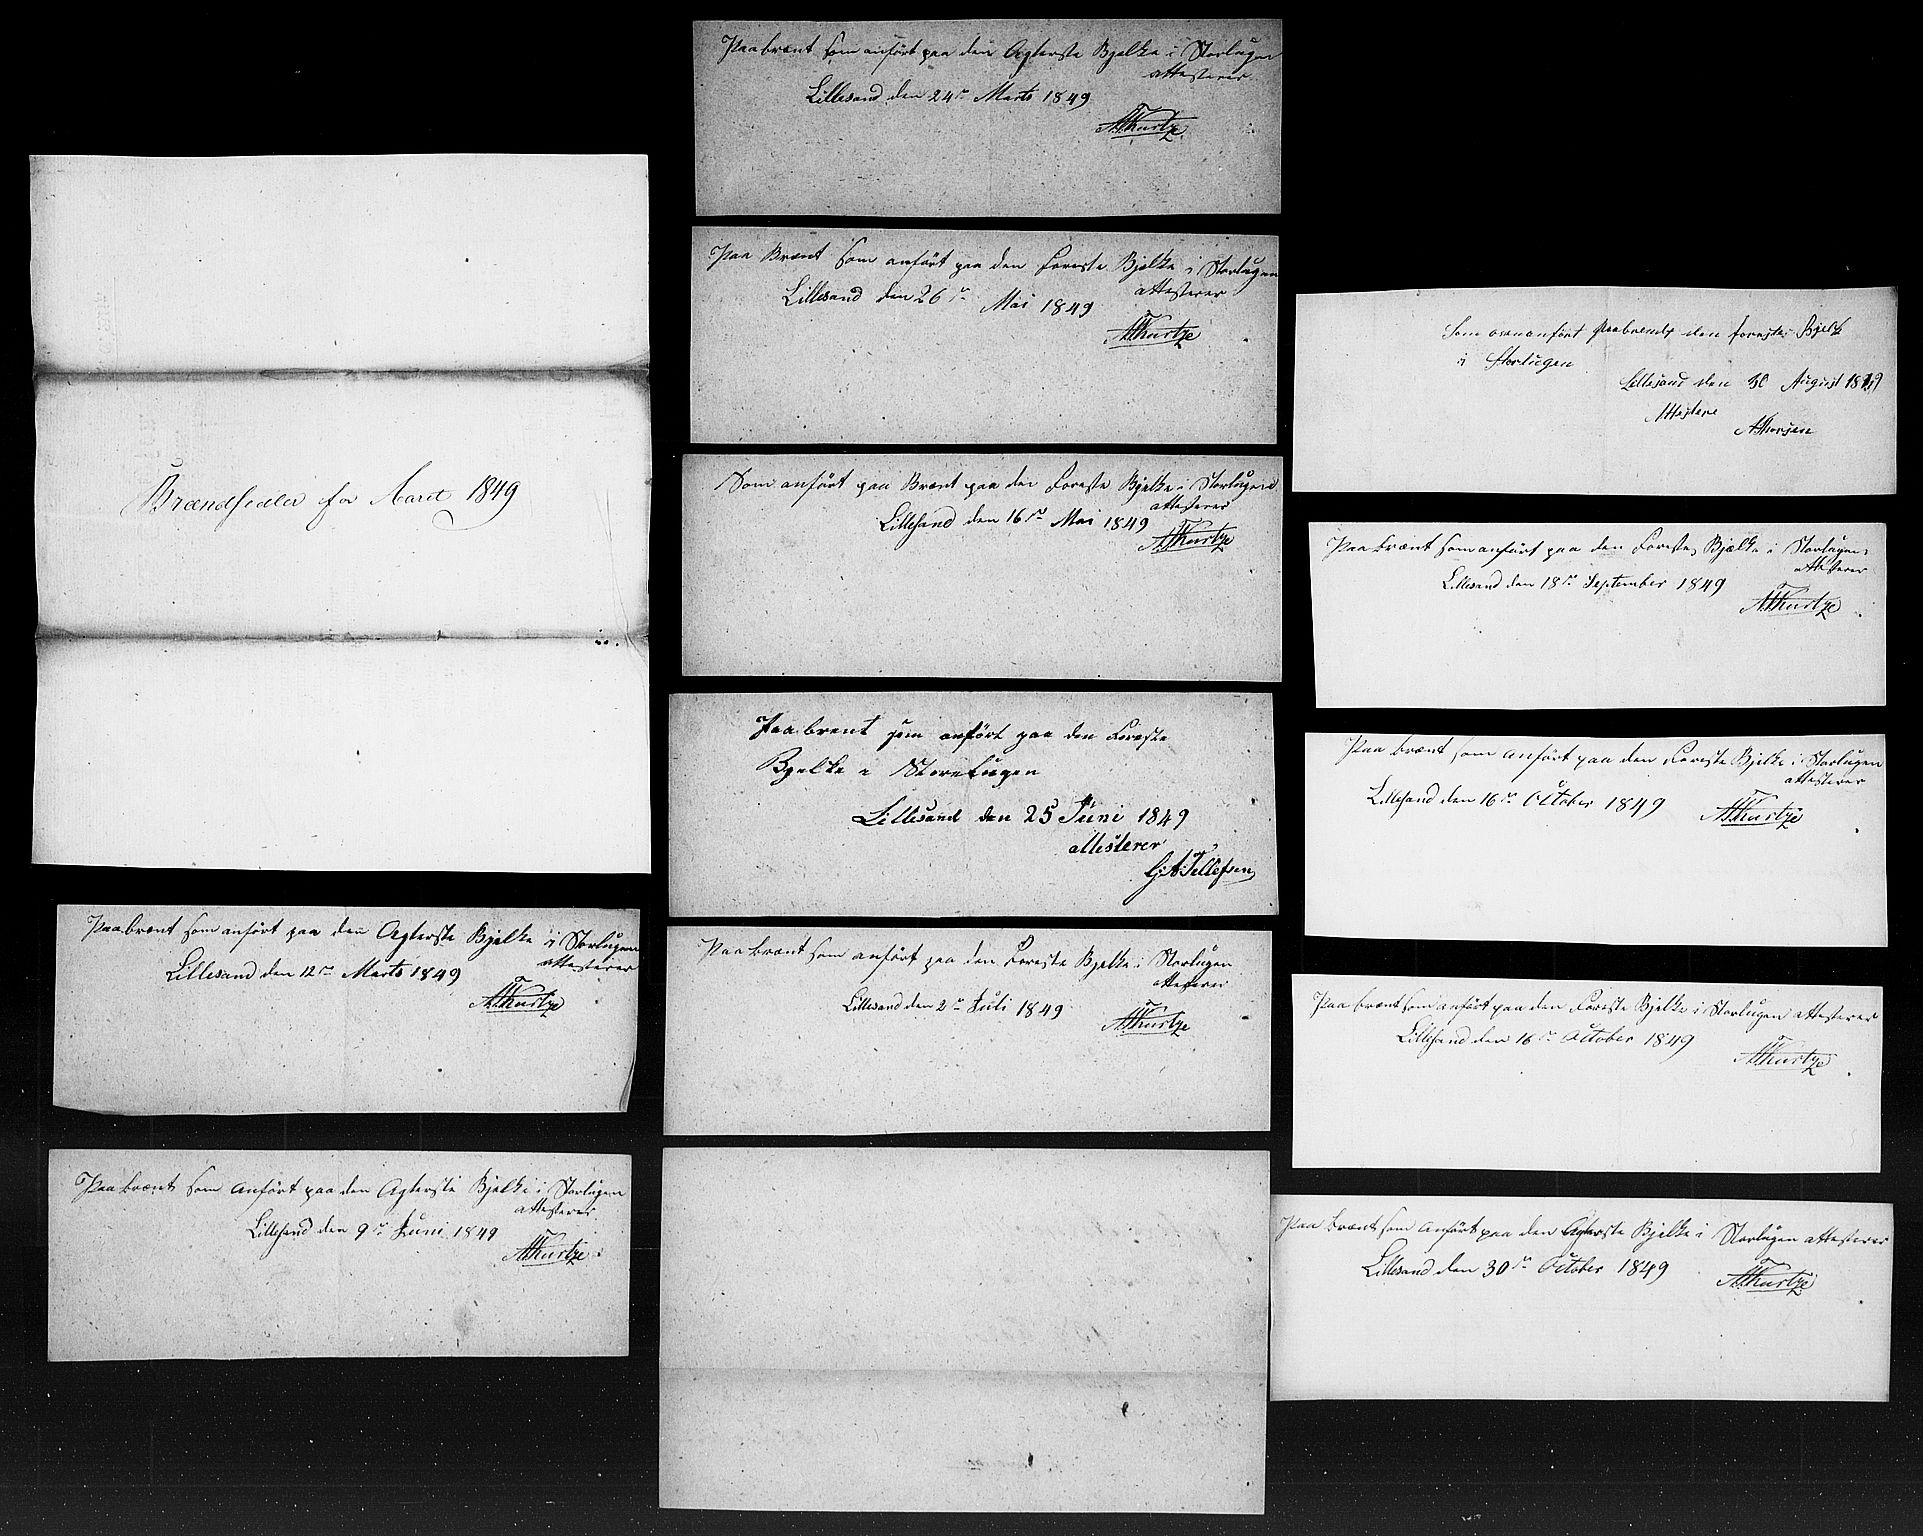 Brændsedler for Aaret 1849
Paabrænt som anført paa den Agterste Bjelke i Storlugen
attesterer
Lillesand den 12te Marts 1849
Paabrænt som anført paa den Agterste Bjelke i Storlugen
attesterer
Lillesand den 9de Juni 1849
Paabrænt som anført paa den Agterste Bjelke i Storlugen
attesterer
Lillesand den 24de Marts 1849
Paa Brænt som anført paa den Foreste Bjelke i Storlugen
attesterer
Lillesand den 26de Mai 1849
Som anført paa Brænt paa den Foreste Bjelke i Storlugen
attesterer
Lillesand den 16de Mai 1849
Paabrent som anført paa den Foreste
Bjelke i Storelugen
Lillesand den 25 Juni 1849
attesterer
G: A: Tellefsen
Paa brænt som anført paa den Foreste Bjelke i Storlugen
attesterer
Lillesand den 2de Juli 1849
Som ovenanført paabrendt den forreste Bjelk
i Storlugen
Lillesand den 30 August 1849
Attestere
Paa brænt som anført paa den Foreste Bjælke i Storlugen
attesterer
Lillesand den 18de September 1849
Paa brænt som anført paa den Foreste Bjelke i Storlugen
attesterer
Lillesand den 16de October 1849
Paa brænt som anført paa den Foreste Bjelke i Storlugen attesterer
Lillesand den 16de October 1849
Paa brænt som anført paa den Agterste Bjelke i Storlugen attesterer
Lillesand den 30te October 1849